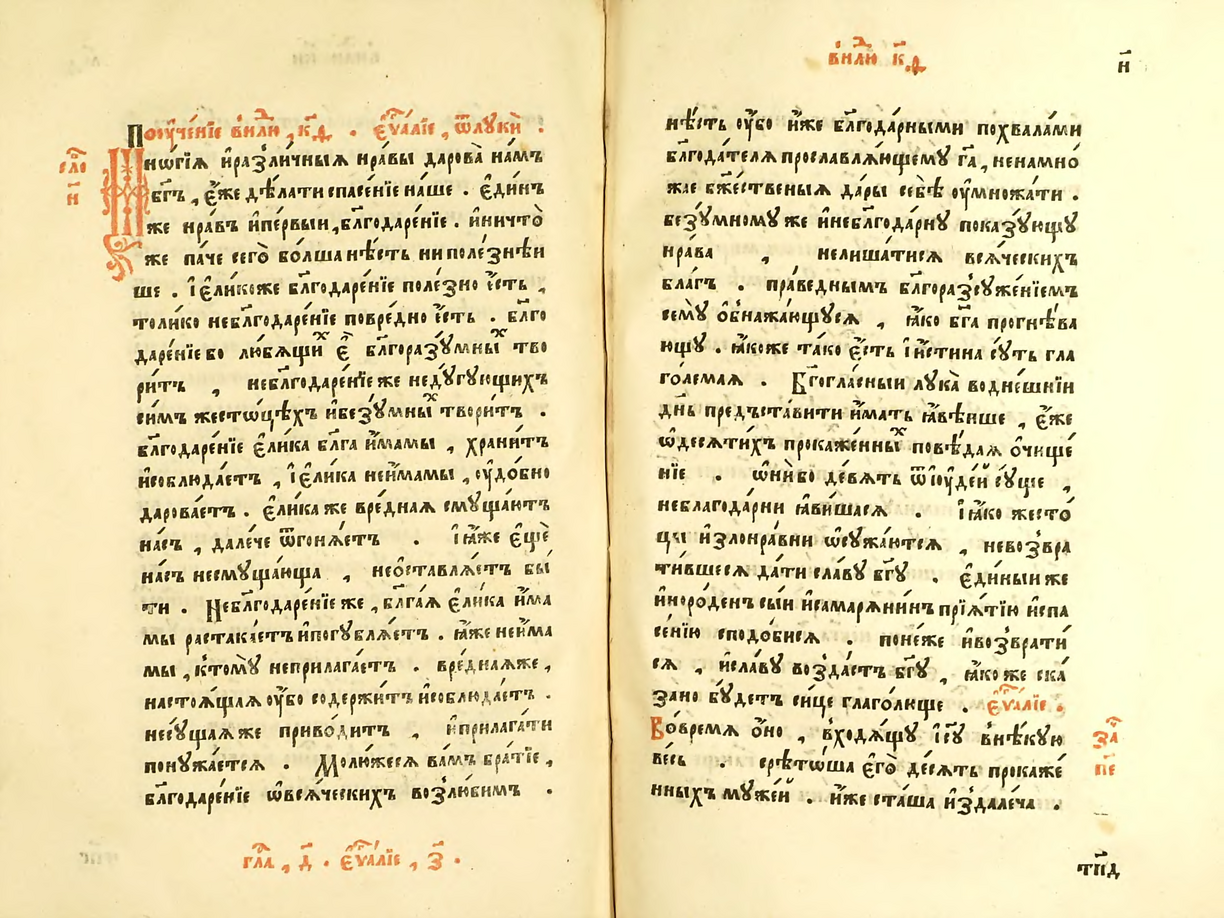 Поꙋче́нїе внл҃ю , к҃д . Є҆ѵⷢ҇а́лїе , ѿлꙋкѝ .
сло́ н҃
Мнѡ́гїѧ и҆разли́чныѧ нра́вы дарова̀ на́мъ
бг҃ъ , є҆́же дѣ́лати спасе́нїе на́ше . є҆ди́нъ
же нра́въ и҆пе́рвыи , бл҃годаре́нїе . и҆ничто̀
же па́че сего̀ бо́лша нѣ́сть ни поле́знѣи
ше . і҆є҆ли́коже бл҃годаре́нїе поле́зно є҆́сть ,
толи́ко небл҃годаре́нїе повре́дно є҆́сть . бл҃го
даре́нїе бо лю́бѧщиⷯ є҆̀ бл҃горазꙋ́мныⷯ тво
ри́тъ , небл҃годаре́нїе же недꙋ́гꙋющихъ
си́мъ жесто́цѣхъ и҆безꙋ́мныⷯ твори́тъ .
бл҃годаре́нїе є҆ли́ка бл҃га и҆́мамы , храни́тъ
и҆соблюда́етъ , і҆є҆ли́ка неи́мамы , ᲂу҆до́бно
дарова́етъ . є҆ли́ка же вре́дная смꙋща́ютъ
на́съ , дале́че ѿгонѧ́етъ . і҆ꙗ҆́же є҆щѐ
на́съ несмꙋща́юща , неѻ҆ставлѧ́етъ бы́
ти . Небл҃годаре́нїе же , бл҃га́ѧ є҆ли́ка и҆́ма
мы растака́етъ и҆погꙋблѧ́етъ . ꙗ҆́же неи́ма
мы , к̾томꙋ̀ неприлага́етъ . вре́днаѧже ,
настоѧ́щаѧ ᲂу҆́бо содержи́тъ и҆соблюда́етъ .
несꙋ́щаѧ же приво́дитъ , и҆прилага́ти
понꙋжа́етсѧ . Молю́жесѧ ва́мъ бра́тїе ,
бл҃годаре́нїе ѡ҆всѧ́ческихъ возлю́бимъ .
гла҃ , д҃ . є҆ѵⷢ҇а́лїе , з҃ .
внл҃ю к҃д
н҃
нѣ́сть ᲂу҆́бо и҆́же бл҃года́рными похвала́ми
бл҃года́телѧ прославлѧ́ющемꙋ гд҃а , ненамно́
жае бж҃е́ственыѧ да́ры себѣ̀ ᲂу҆множа́ти .
безꙋ́мномꙋ же и҆небл҃года́рнꙋ показꙋ́ющꙋ
нра́ва , нелиша́тисѧ всѧ́ческихъ
бла́гъ . пра́веднымъ бл҃горазсꙋже́нїемъ
семꙋ̀ ѻ҆бнажа́ющꙋсѧ , ꙗ҆́ко бг҃а прогнѣ́ва
ющꙋ . ꙗ҆́коже та́ко є҆́сть і҆и́стина сꙋ́ть гла
го́лемаѧ . Бг҃огла́сныи лꙋка̀ воднешнїи
дн҃ь предъста́вити и҆́мать ꙗ҆́вѣнше , є҆́же
ѡ҆десѧти́хъ прокаже́нныⷯ повѣ́даѧ ѻ҆чище́
нїе . ѡ҆ни́ бо де́вѧть ѿ і҆ꙋде́й сꙋ́ще ,
неблагода́рни ꙗ҆ви́шасѧ . і҆ꙗ҆́ко жесто́
цы и҆злонра́вни ѡ҆сꙋжа́ютсѧ , невозвра
ти́вшесѧ да́ти сла́вꙋ бг҃ꙋ . є҆ди́ныи же
и҆норо́денъ сы́и и҆самарѧни́нъ прїѧ́тїю и҆спа
се́нїю сподо́бисѧ . поне́же и҆возврати́
сѧ , и҆сла́вꙋ возда́стъ бг҃ꙋ , ꙗ҆́ко же ска
за́но бꙋ́детъ си́це глаго́лище . є҆ѵⷢ҇а́лїе .
Во́времѧ ѻ҆́но , входѧ́щꙋ і҆с҃ꙋ внѣ́кꙋю
ве́сь . срѣто́ша є҆го̀ де́сѧть прокаже́
нныхъ мꙋже́й . и҆́же ста́ша и҆здале́ча .
за҃ п҃е
тп҃д